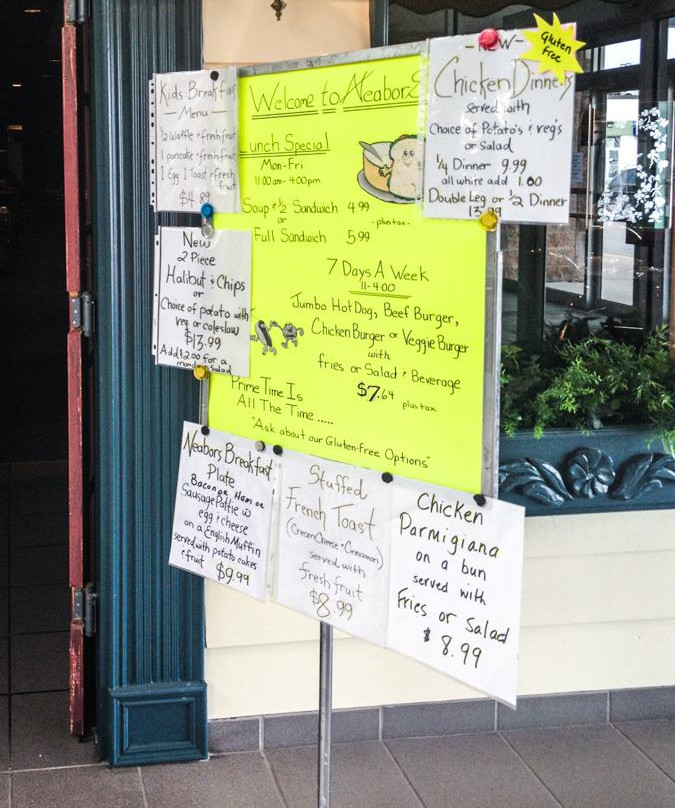 Kids Breakfast
Menu
1/2 Waffle & fresh fruit
1 pancake & fresh fruit
1 Egg 1 Toast & fresh
fruit
$4.89
Welcome to Neabors
Lunch Special
Mon-Fri.
11:00am-4:00pm
Soup & 1/2 Sandwich 4.99
or
-plus tax-
Full Sandwich 5.99
7 Days A Week
11-4:00
Jumbo Hot Dog, Beef Burger,
Chicken Burger or Veggie Burger
with
fries or Salad & Beverage
$7.64 plus tax
Prime Time Is
All The Time .....
"Ask about our Gluten-Free Options"
-New-
Gluten
Free
Chicken Dinners
served with
Choice of Potato's & veg's
or Salad
1/4 Dinner 9.99
all white add 1.00
Double Leg or 1/2 Dinner
13.99
New
2 Piece
Halibut & Chips
or
Choice of potato with
veg or coleslaw
$13.99
Add $2.00 for a
Salad
Neabors Breakfast
Plate
Bacon or Ham or
Sausage Pattie w
egg & cheese
on a English Muffin
served with potato cakes
& fruit $9.99
Stuffed
French Toast
(Cream Cheese & Cinnamon)
served with
fresh fruit
$8.99
Chicken
Parmigiana
on a bun
served with
Fries or Salad
$8.99